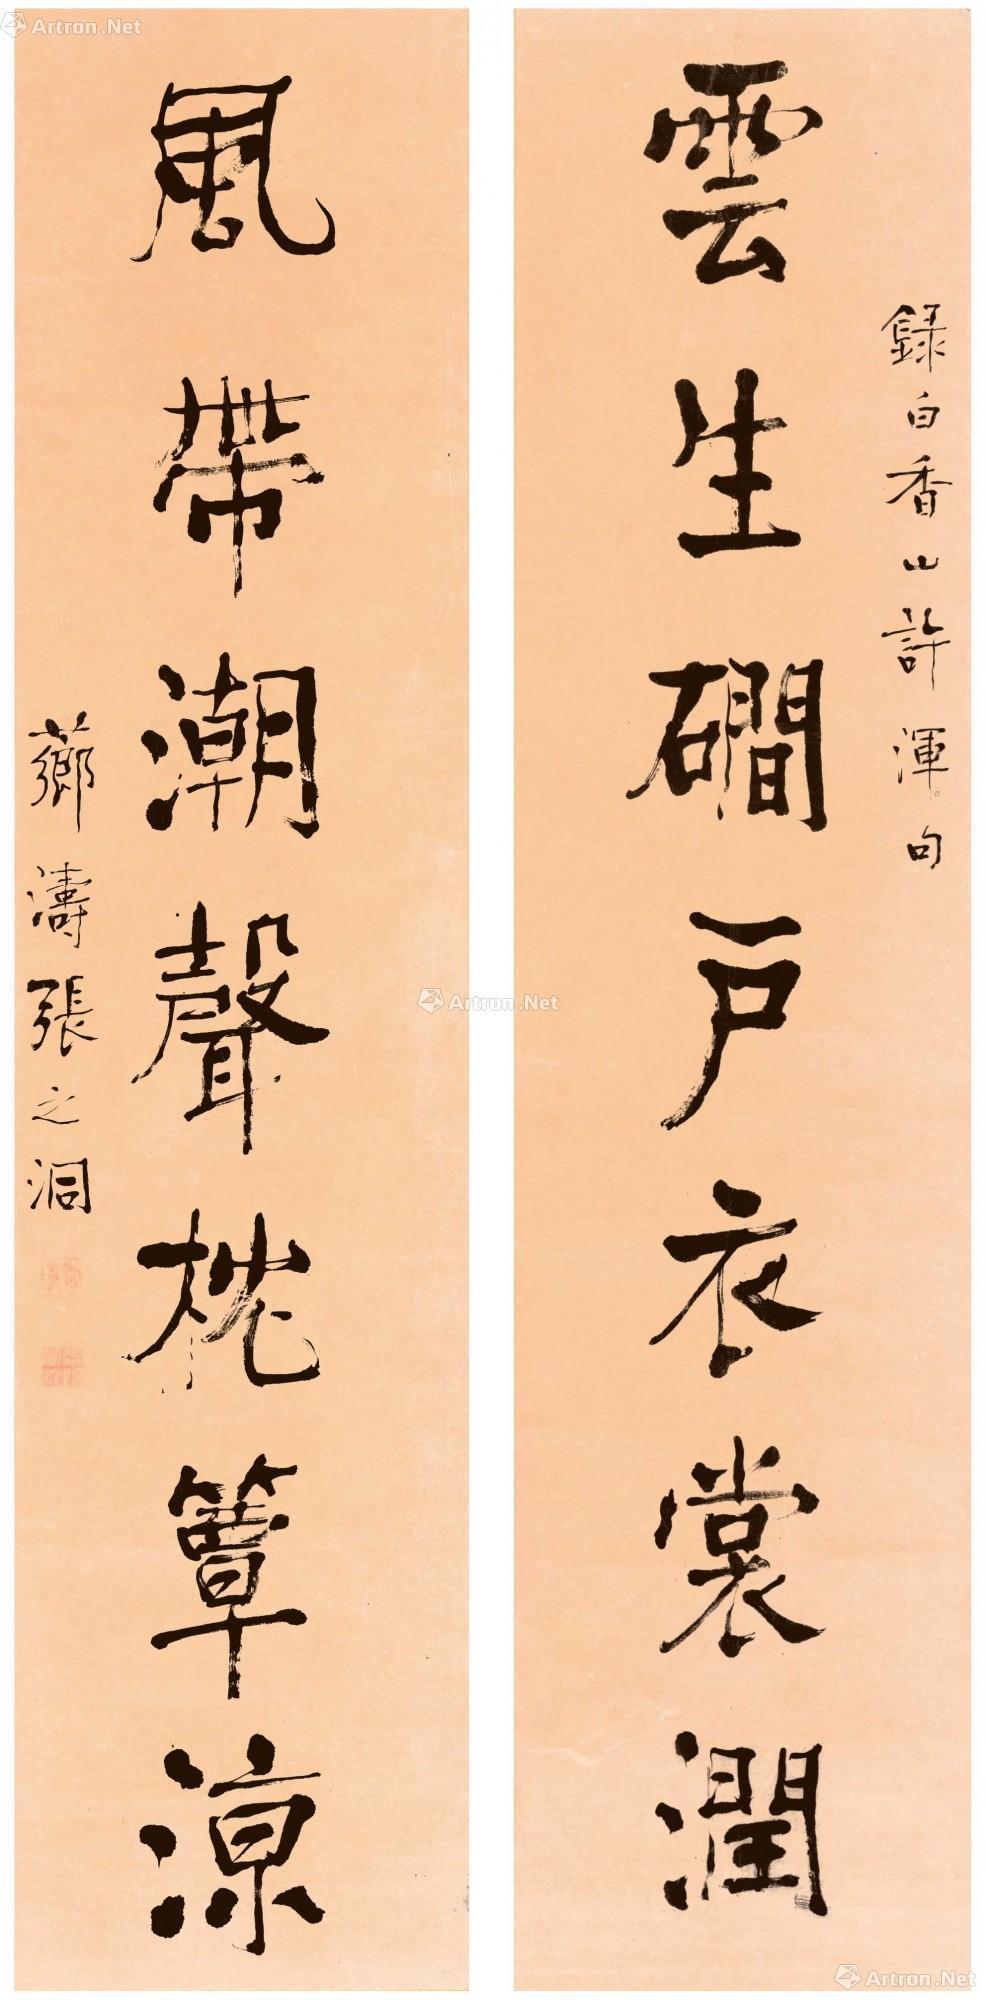 錄白香山許渾句
雲生磵戶衣裳潤
風帶潮聲枕簟涼
薌濤張之洞
Artron.Net
Artron.Net
Artron.Net